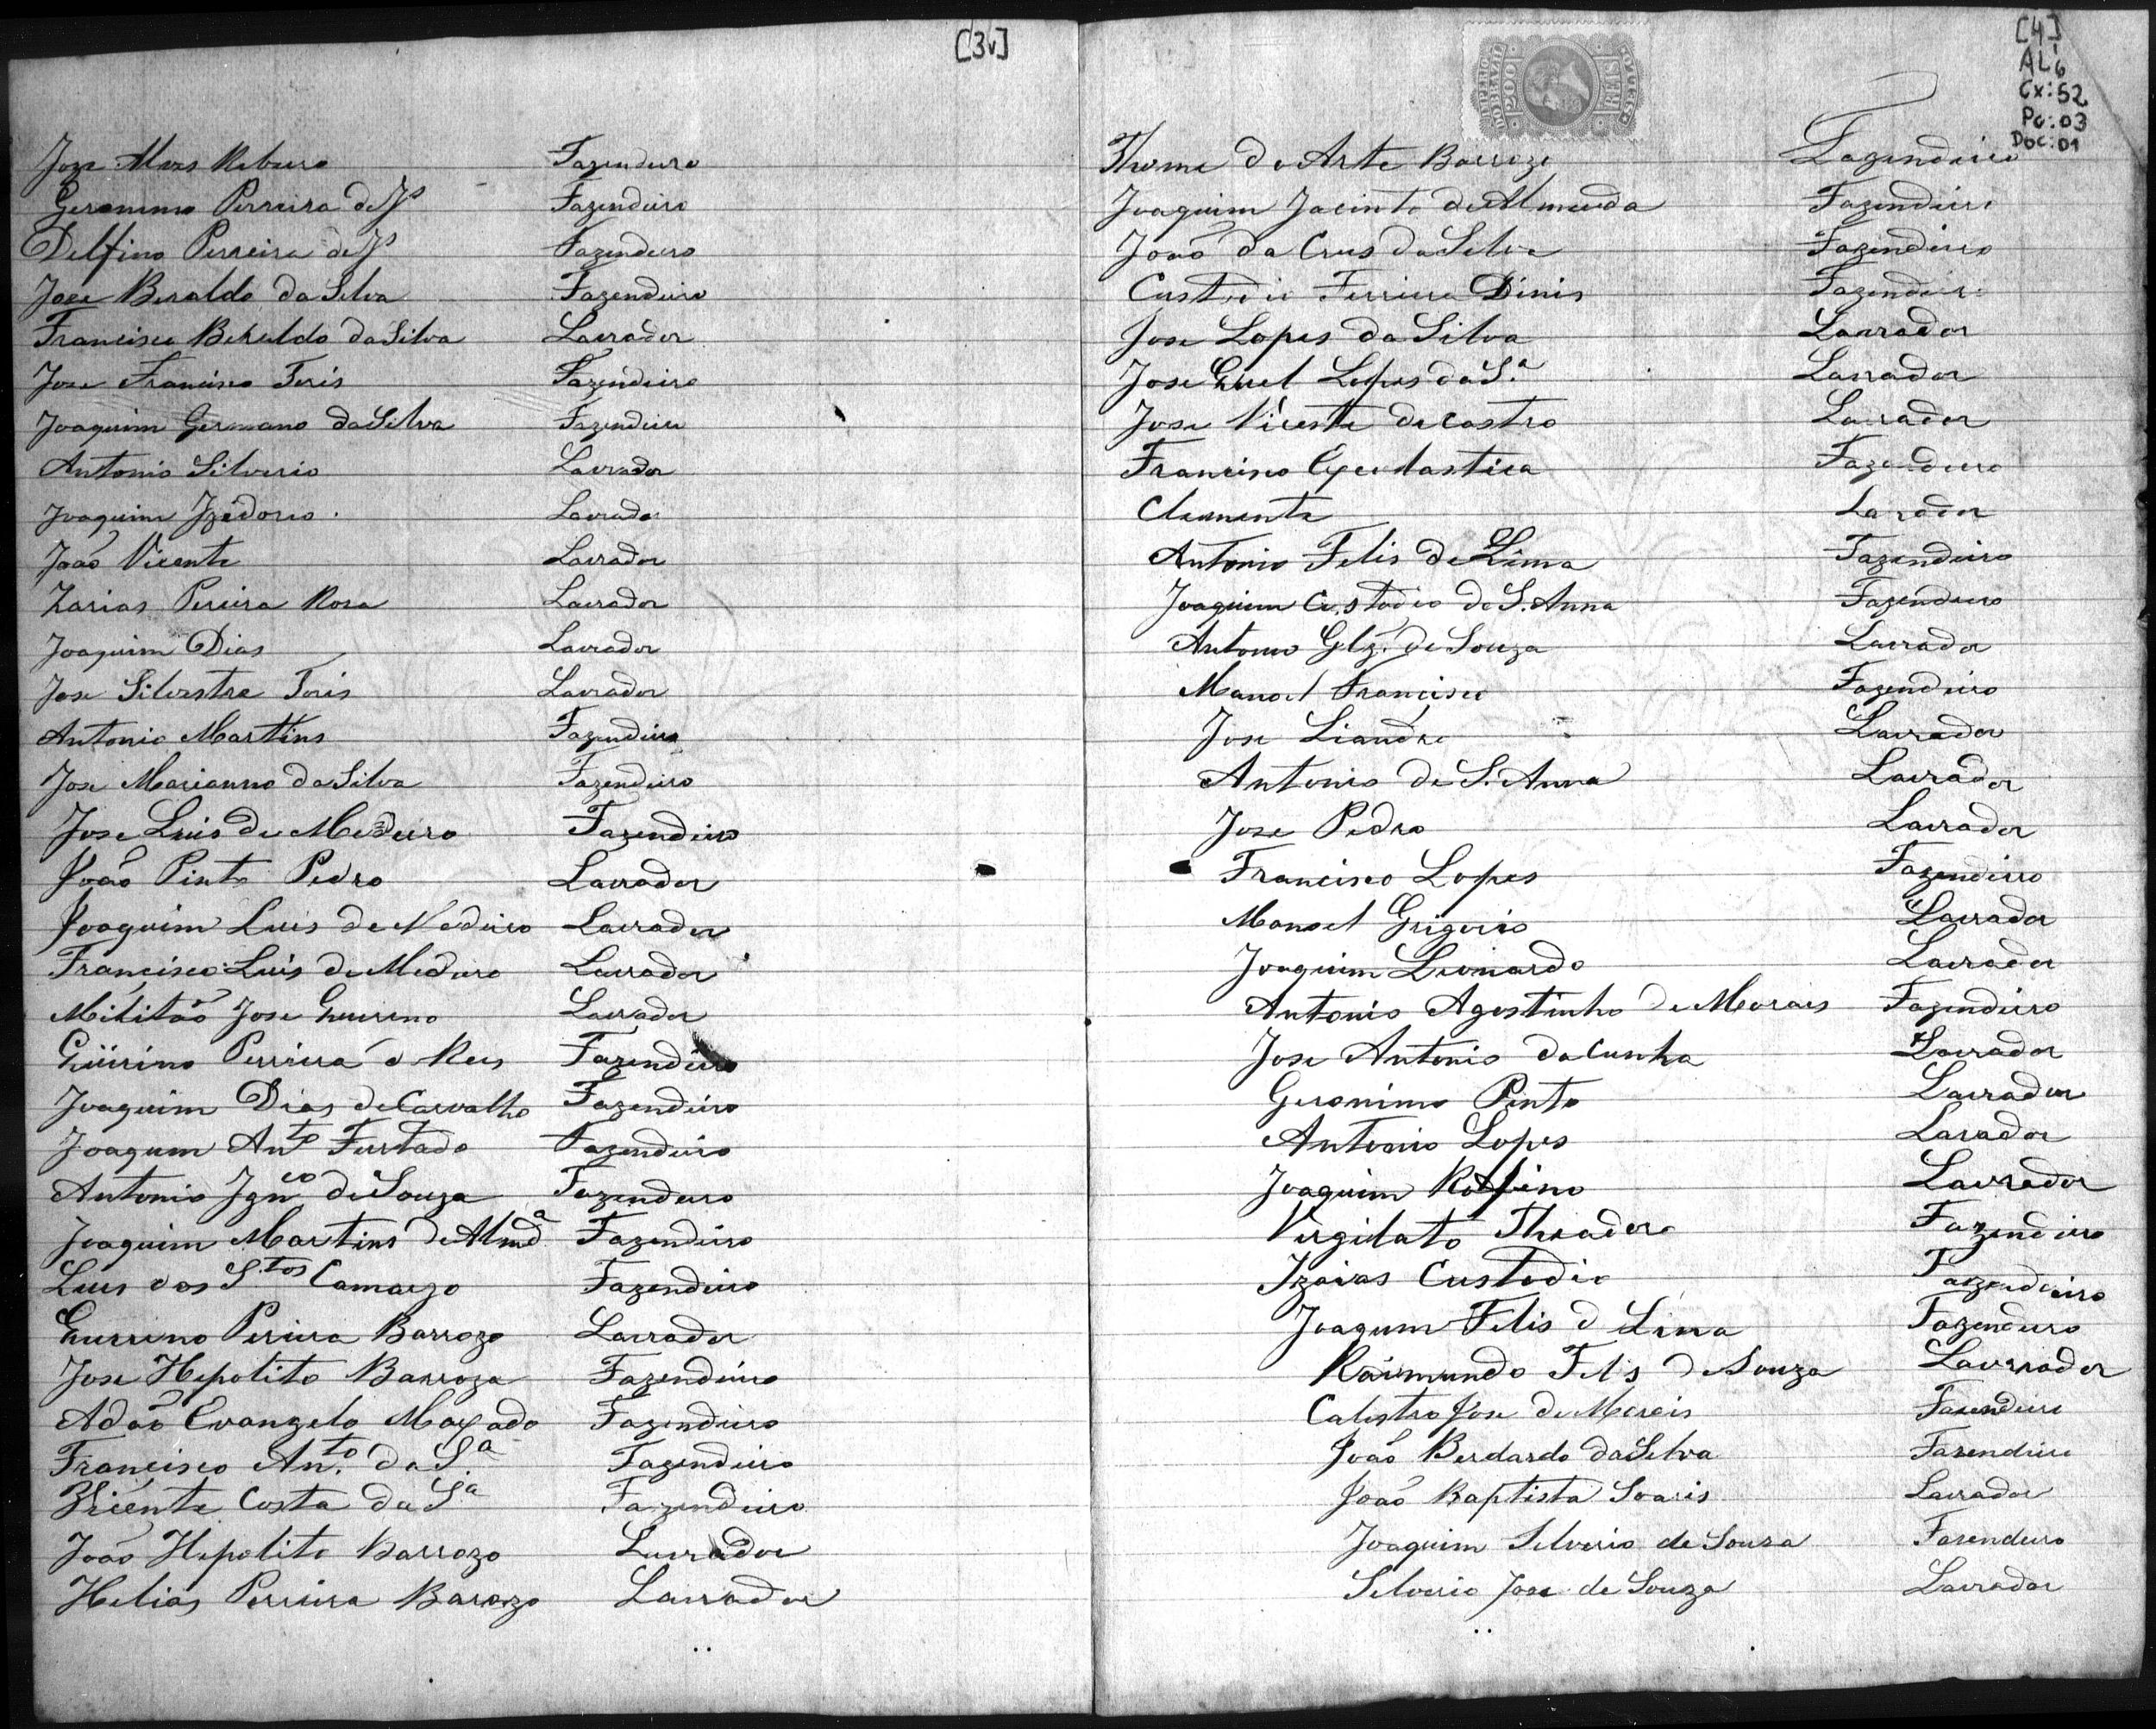 [3v]
Joze Alves Rebeiro Fazendeiro
Geronimo Perreira de Jº Fazendeiro
Delfino Perreira de Jº Fazendeiro
Joze Beraldo da Silva Fazendeiro
Francisco Beraldo da Silva Lavrador
Jose Francisco Fa­zendeiro
Joaquim Germano da Silva Fazendeiro
Antonio Silverio Lavrador
Joaquim Izedoro Lavrador
João Vicente Lavrador
Zarias Pereira Rosa Lavrador
Joaquim Dias Lavrador
Jose Silvestre Lavrador
Antonio Martins Fazendeiro
Jose Marianno da Silva Fazendeiro
Jose Luis de Medeiro Fazendeiro
João Pinto Pedro Lavrador
Joaquim Luis de Madeiro Lavrador
Francisco Luis de Medeiro Lavrador
Militão Jose Lavrador
Perreira Fazendeiro
Joaquim Dias de Carvalho Fazendeiro
Joaquim Anto Furtado Fazendeiro
Antonio Ignco de Souza Fazendeiro
Joaquim Martins de Almda Fazendeiro
Luis dos Stos Camargo Fazendeiro
Pereira Barrozo Lavrador
Jose Hepolito Barroza Fazendeiro
Adão Evangelo Maxado Fazendeiro
Francisco Anto da Sa Fazendeiro
Vicente Costa da Sa Fazendeiro
João Hepolito Barrozo Lavrador
Helias Perreira Barozo Lavrador
[4]
AL6
Cx:52
Pc:03
Doc:01
IMPERIO DO BRAZIL 200 REIS
Thome Barrozo Fazendeiro
Joaquim Jacinto de Almeida Fazendeiro
João da Crus da Silva Fazendeiro
Custodio Ferreira Dinis Fazendeiro
Jose Lopes da Silva Lavrador
Jose Lopes da Sa Lavrador
Jose Vicente de Castro Lavrador
Francisco Fazendeiro
Clemente Lavrador
Antonio Felis de Lima Fazendeiro
Joaquim Custodio de S. Anna Fazendeiro
Antonio Glz. de Souza Lavrador
Manoel Francisco Fazendeiro
Jose Liandro Lavrador
Antonio de S. Anna Lavrador
Jose Pedro Lavrador
Francisco Lopes Fazendeiro
Manoel Grigorio Lavrador
Joaquim Leonardo Lavrador
Antonio Agostinho de Morais Fazendeiro
Jose Antonio da Cunha Lavrador
Geronimo Pinto Lavrador
Antonio Lopes Lavrador
Joaquim Rofino Lavrador
Virgilato Theadoro Fazendeiro
Izaias Custodio Fazendeiro
Joaquim Felis d Lima Fazendeiro
Raimundo Felis de Souza Lavrrador
Calistro Jose de Morais Fasendeiro
João Berdardo da Silva Fazendeiro
João Baptista Soaris Lavrador
Joaquim Silverio de Sousa Fasendeiro
Silverio Jose de Souza Lavrador